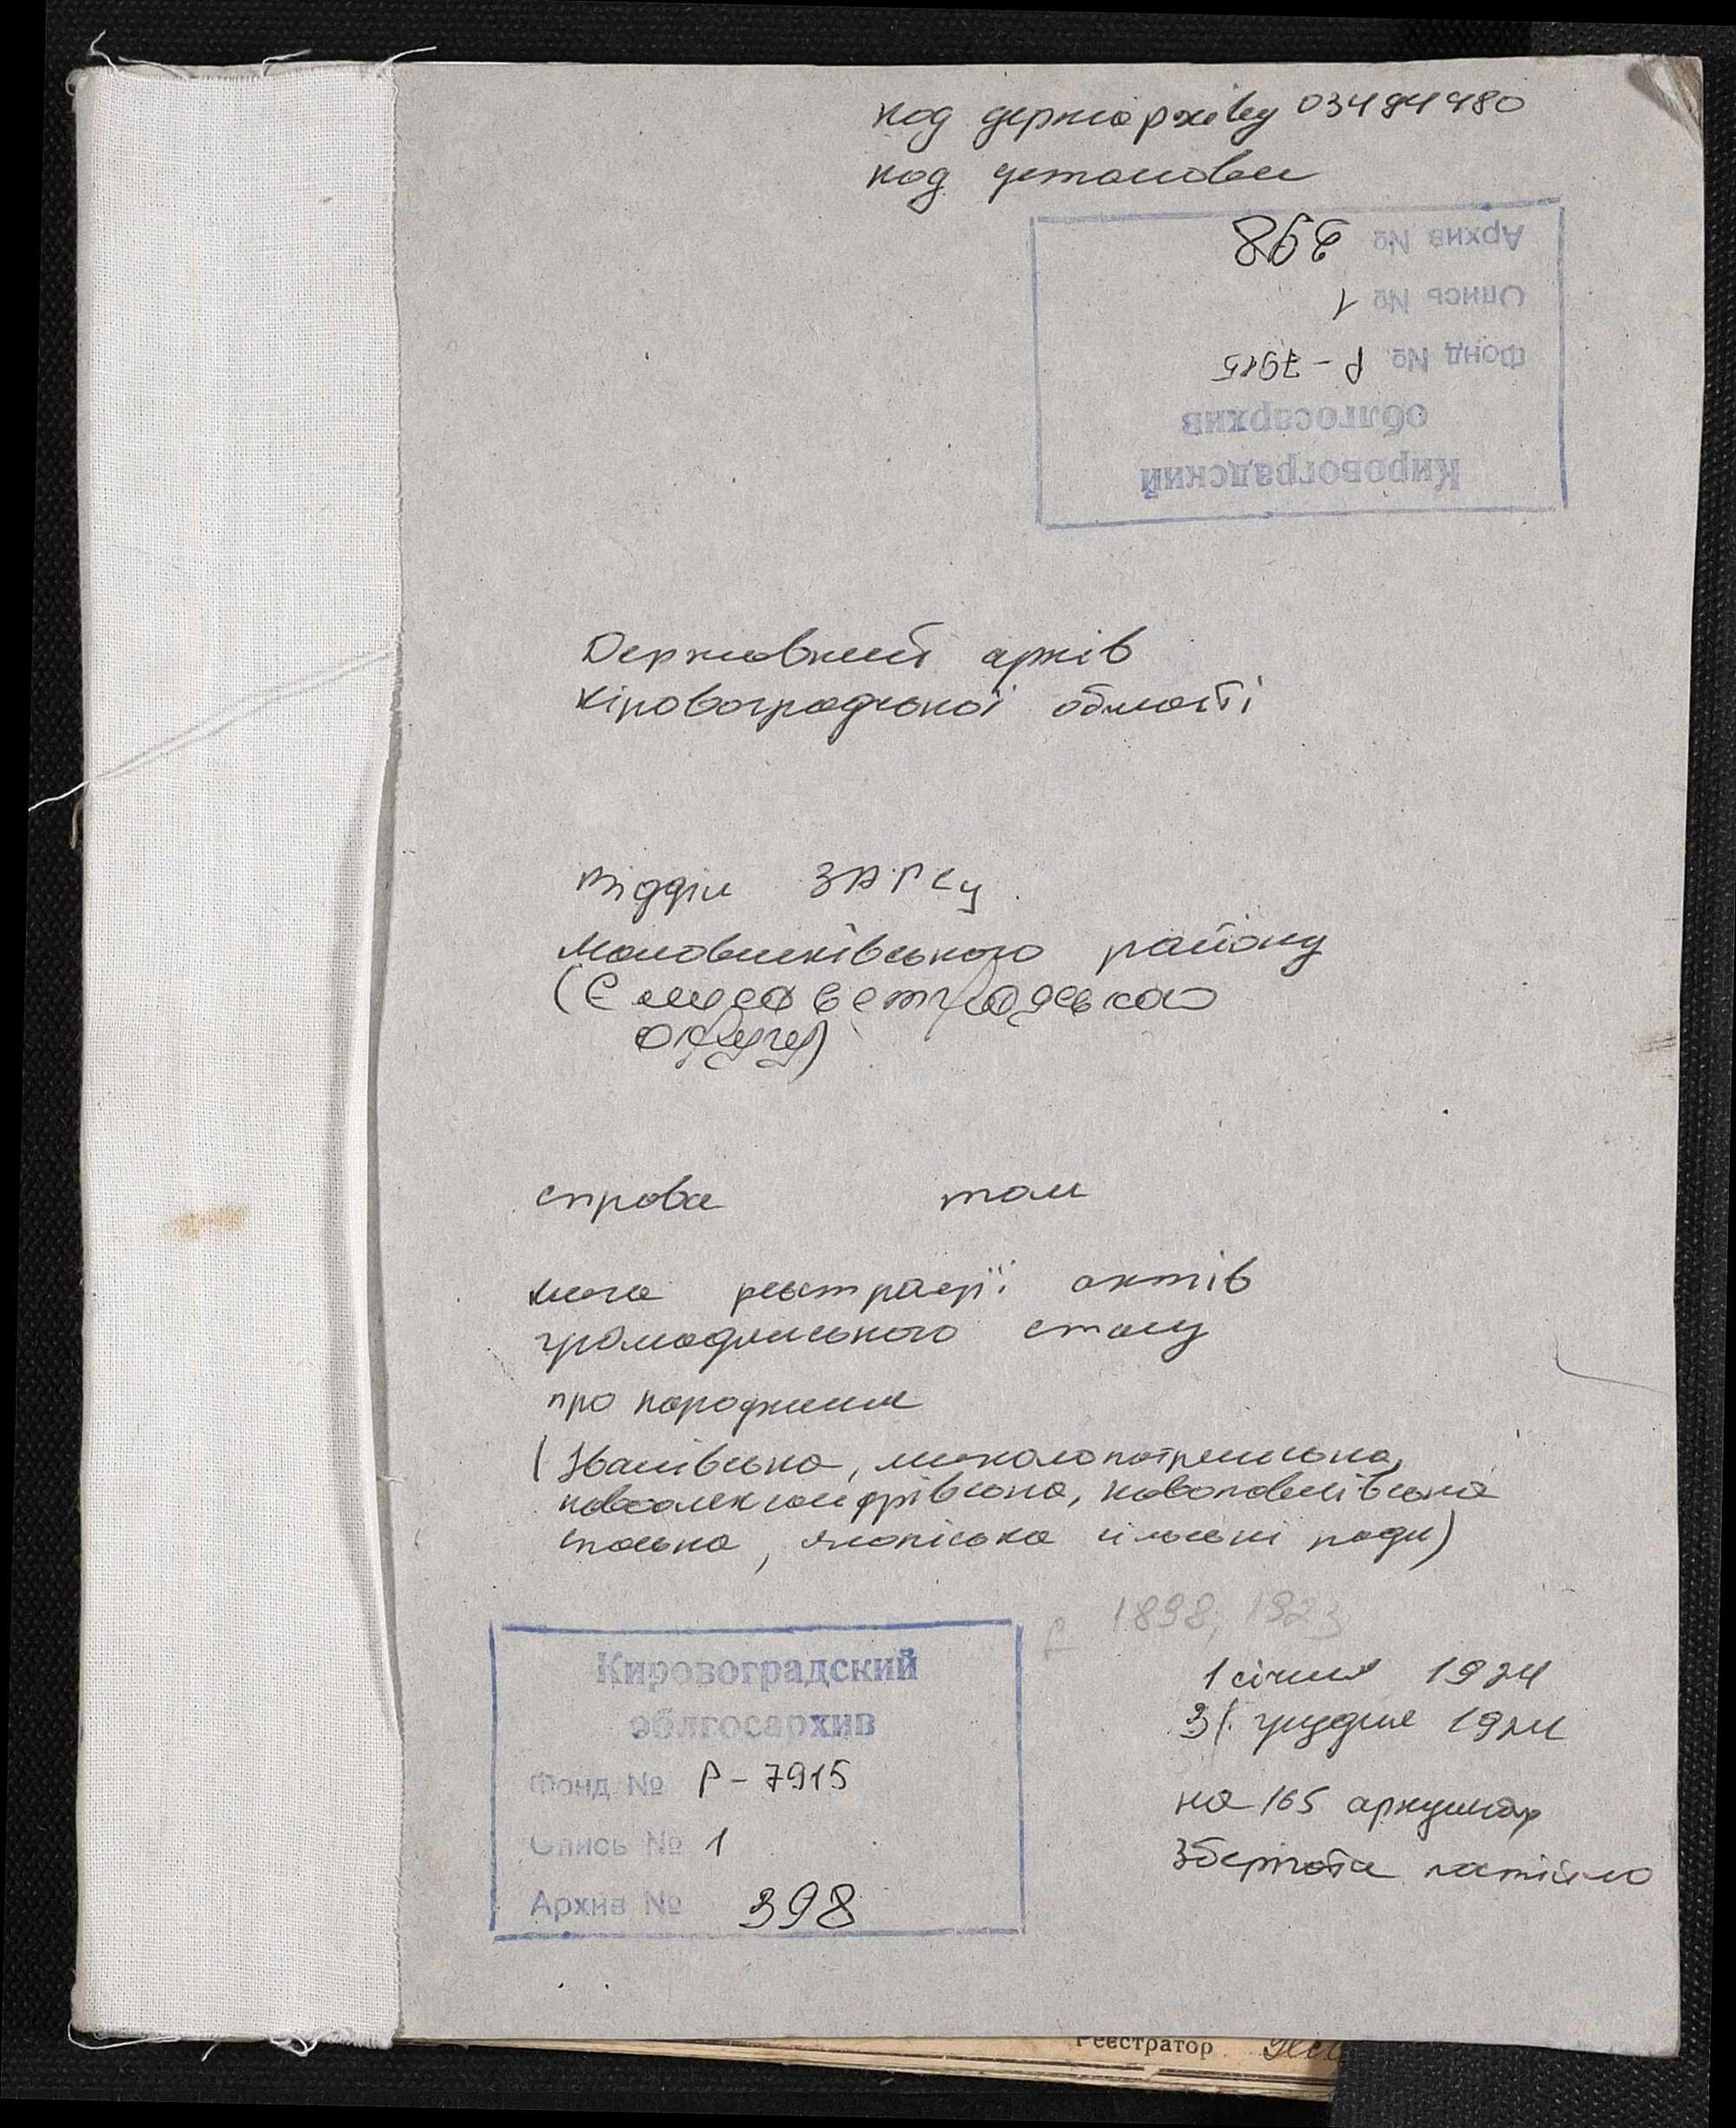 код держархіву 03494980
код установи
Архив № 398
Опись № 1
Фонд № Р-7915
облгосархив
Кировоградский
Державний архів
Кіровоградської області
Відділ ЗАГСу
Маловисківського району
(Єлисаветградська
округу)
справа том
книга реєстрації актів
громадянського стану
про народження
(Іванівська, миколопетрівська,
новоолександрівська, новопавлівська
сільські ради)
1898, 1923
1 січня 1924
31 грудня 1924
на 165 аркушах
Зберігати постійно
Кировоградский
облгосархив
Фонд № Р-7915
Опись № 1
Архив № 398
Реестратор